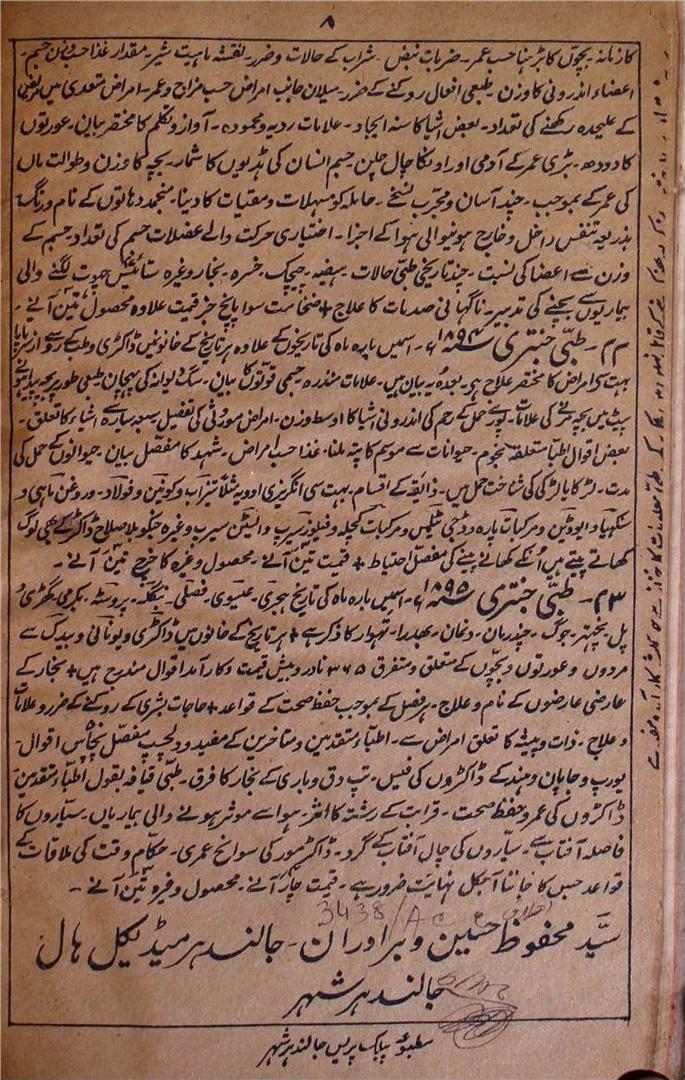 ۸
کا زمانہ۔ بچوں کا بڑھنا حسب عمر۔ ضربات نبض۔ شراب کے حالات و ضرر۔ نقشہ ماہیت شیر۔ مقدار غذا حسب وزن جسم۔
اعضاء اندرونی کا وزن۔ طبعی افعال روکنے کے ضرر۔ میلان جانب امراض حسب مزاج و عمر۔ امراض متعدی میں مریض
کے علیحدہ رکھنے کی تعداد۔ بعض اشیا کا سنہ ایجاد۔ علامات ردیہ و محمودہ۔ آواز و تکلم کا مختصر بیان۔ عورتوں
کا دودھ۔ بڑی عمر کے آدمی اور اونکا چال چلن۔ جسم انسان کی ہڈیوں کا شمار۔ بچہ کا وزن و طوالت ماں
کی عمر کے بموجب۔ چند آسان و مجرب نسخے۔ حاملہ کو مسہلات و مقیات کا دینا۔ منجمد دہاتوں کے نام و رنگ۔
بذریعہ تنفس داخل و خارج ہونیوالی ہوا کے اجزا۔ اختیاری حرکت والے عضلات جسم کی تعداد۔ جسم کے
وزن سے اعضا کی نسبت۔ چند تاریخی طبی حالات۔ ہیضہ۔ چیچک۔ خسرہ۔ بخار وغیرہ ستائیس چھوت لگنے والی
بیماریوں سے بچنے کی تدبیر۔ ناگہانی صدمات کا علاج + ضخامت سوا پانچ جز قیمت علاوہ محصول تین آنے۔
۲۲۔ طبی جنتری ۱۸۹۴ء۔ اسمیں بارہ ماہ کی تاریخوں کے علاوہ ہر تاریخ کے خانونمیں ڈاکٹری و طب کے رو سے
بہت سی امراض کا مختصر علاج ہے۔ بعدہ یہ بیان ہیں۔ علامات مندرہ جسمی قوتوں کا بیان۔ سگ دیوانہ کی پہچان طبعی طور پر بچہ پیدا ہونے
پیٹ میں بچہ مرنے کی علامات۔ پورے حمل کے رحم کی اندرونی اشیا کا اوسط وزن۔ امراض موروثی کی تفصیل سبعہ سیارہ سے اشیاء کا تعلق۔
بعض اقوال اطبا متعلقہ نجوم۔ حیوانات سے موسم کا پتہ ملنا۔ غذا حسب امراض۔ شہد کا مفصل بیان۔ حیوانوں کے حمل کی
مدت۔ لڑکا یا لڑکی کی شناخت حمل میں۔ ذائقہ کے اقسام۔ بہت سی انگریزی ادویہ مثلاً تیزاب و کونین و فولاد۔ و روغن ماہی و
سنکھیا و ایوڈین و مرکبات پارہ و ڈجی ٹیلس و مرکبات کچلہ و فیلوز سیرپ و ایسٹن سیرپ وغیرہ جنکو بلا صلاح ڈاکٹر کے بھی لوگ
کھاتے پیتے ہیں اُنکے کھانے پینے کی مفصل احتیاط + قیمت تین آنے۔ محصول وغیرہ کا خرچ تین آنے۔
۲۳۔ طبی جنتری ۱۸۹۵ء۔ اسمیں بارہ ماہ کی تاریخ ہجری۔ عیسوی۔ فصلی۔ بنگلہ۔ پروشٹہ۔ بکرمی۔ گھڑی
پل۔ نچھتر۔ جوگ۔ چندرمان۔ دغان۔ بھدرا۔ تہوار کا ذکر ہے + ہر تاریخ کے خانوں میں ڈاکٹری و یونانی و بیدک سے
مردوں و عورتوں و بچوں کے متعلق و متفرق ۳۶۵ نادر و بیش قیمت و کارآمد اقوال مندرج ہیں + بخار کے
عارضی عارضوں کے نام و علاج۔ ہر فصل کے بموجب حفظ صحت کے قواعد + حاجات بشری کے روکنے کے ضرر و علامات
و علاج۔ ذات و پیشہ کا تعلق امراض سے۔ اطباء متقدمین و متاخرین کے مفید و دلچسپ مفصل پچاس اقوال۔
یورپ و جاپان و ہند کے ڈاکٹروں کی فیس۔ تپ دق و باری کے بخار کا فرق۔ طبی قیافہ بقول اطباء متقدمین
ڈاکٹروں کی عمر و حفظ صحت۔ قرابت کے رشتہ کا اثر۔ ہوا سے موثر ہونے والی بیماریاں۔ سیاروں کا
فاصلہ آفتاب سے۔ سیاروں کی چال آفتاب کے گرد۔ ڈاکٹر مور کی سوانح عمری۔ حکام وقت کی ملاقات کے
قواعد جس کا جاننا آجکل نہایت ضرور ہے۔ قیمت چار آنے۔ محصول وغیرہ تین آنے۔
3438/Ac
سید محفوظ حسین و برادران۔ جالندہر میڈیکل ہال
جالندہر شہر
مطبوعہ پبلک پریس جالندہر شہر